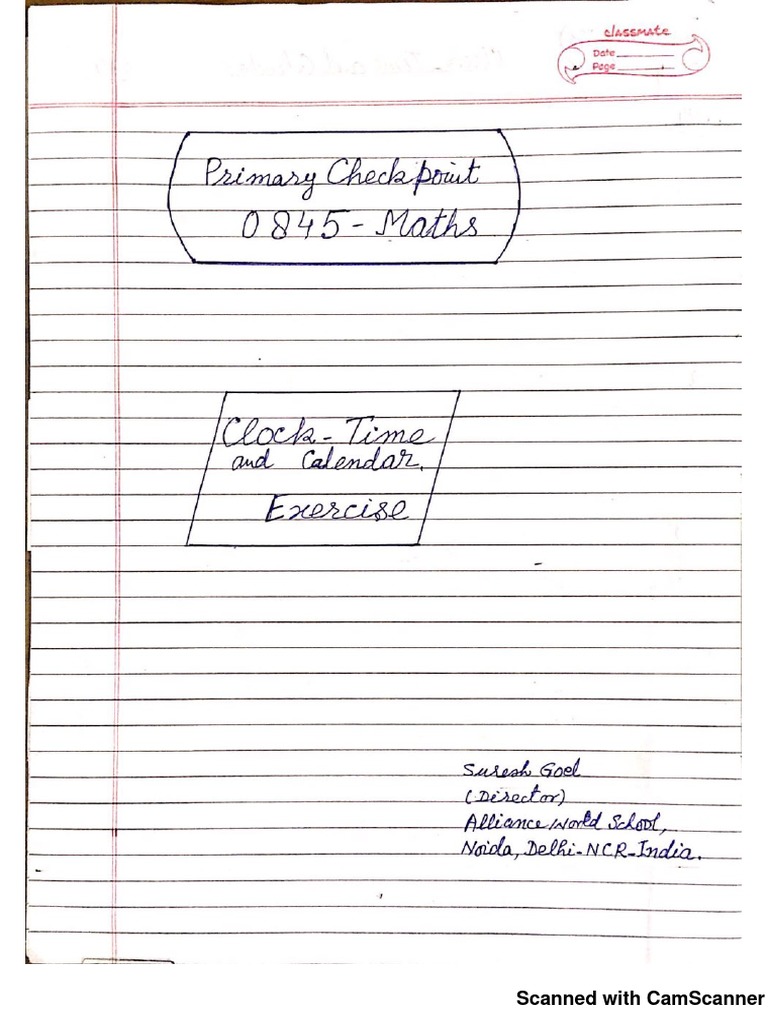 classmate
Date
Page
Primary Checkpoint
0845 - Maths
Clock - Time
and Calendar.
Exercise
Suresh Goel
(Director)
Alliance World School,
Noida, Delhi-NCR-India.
Scanned with CamScanner